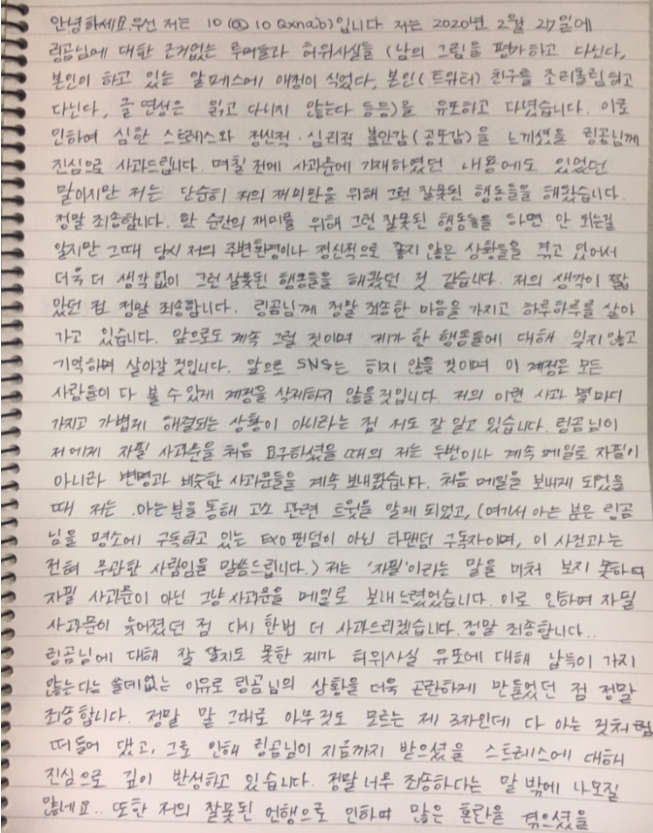 안녕하세요. 우선 저는 10 (@10 0xnab)입니다 저는 2020년 2월 27일에
링곰님에 대한 근거없는 루머들과 허위사실들 (남의 그림을 평가하고 다닌다,
본인이 하고 있는 알페스에 애정이 식었다, 본인(트위터) 친구를 조리돌림하고
다닌다, 글 연성은 읽고 다니지 않는다 등등)을 유포하고 다녔습니다. 이로
인하여 심한 스트레스와 정신적·심리적 불안감(공포감)을 느끼셨을 링곰님께
진심으로 사과드립니다. 며칠 전에 사과문에 기재하였던 내용에도 있었던
말이지만 저는 단순히 저의 재미만을 위해 그런 잘못된 행동들을 해왔습니다.
정말 죄송합니다. 한 순간의 재미를 위해 그런 잘못된 행동들을 하면 안 되는걸
알지만 그때 당시 저의 주변환경이나 정신적으로 좋지 않은 상황들을 겪고 있어서
더욱 더 생각없이 그런 잘못된 행동들을 해왔던 것 같습니다. 저의 생각이 짧
았던 점 정말 죄송합니다. 링곰님께 정말 죄송한 마음을 가지고 하루하루를 살아
가고 있습니다. 앞으로도 계속 그럴 것이며 제가 한 행동들에 대해 잊지 않고
기억하며 살아갈 것입니다. 앞으로 SNS는 하지 않을 것이며 이 계정은 모든
사람들이 다 볼 수 있게 계정을 삭제하지 않을것입니다. 저의 이런 사과 몇마디
가지고 가볍게 해결되는 상황이 아니라는 점 저도 잘 알고 있습니다. 링곰님이
저에게 자필 사과문을 처음 요구하셨을 때의 저는 두번이나 계속 메일로 자필이
아니라 변명과 비슷한 사과문들을 계속 보내왔습니다. 처음 메일을 보내게 되었을
때 저는 아는 분을 통해 고소 관련 트윗을 알게 되었고, (여기서 아는 분은 링곰
님을 평소에 구독하고 있는 EXO 팬덤이 아닌 타팬덤 구독자이며, 이 사건과는
전혀 무관한 사람임을 말씀드립니다.) 저는 '자필'이라는 말을 미처 보지 못하여
자필 사과문이 아닌 그냥 사과문을 메일로 보내 드렸었습니다. 이로 인하여 자필
사과문이 늦어졌던 점 다시 한번 더 사과드리겠습니다. 정말 죄송합니다..
링곰님에 대해 잘 알지도 못한 제가 허위사실 유포에 대해 납득이 가지
않는다는 쓸데없는 이유로 링곰님의 상황을 더욱 곤란하게 만들었던 점 정말
죄송합니다. 정말 말 그대로 아무것도 모르는 제 3자인데 다 아는 것처럼
떠들어 댔고, 그로 인해 링곰님이 지금까지 받으셨을 스트레스에 대해
진심으로 깊이 반성하고 있습니다. 정말 너무 죄송하다는 말 밖에 나오질
않네요.. 또한 저의 잘못된 언행으로 인하여 많은 혼란을 겪으셨을